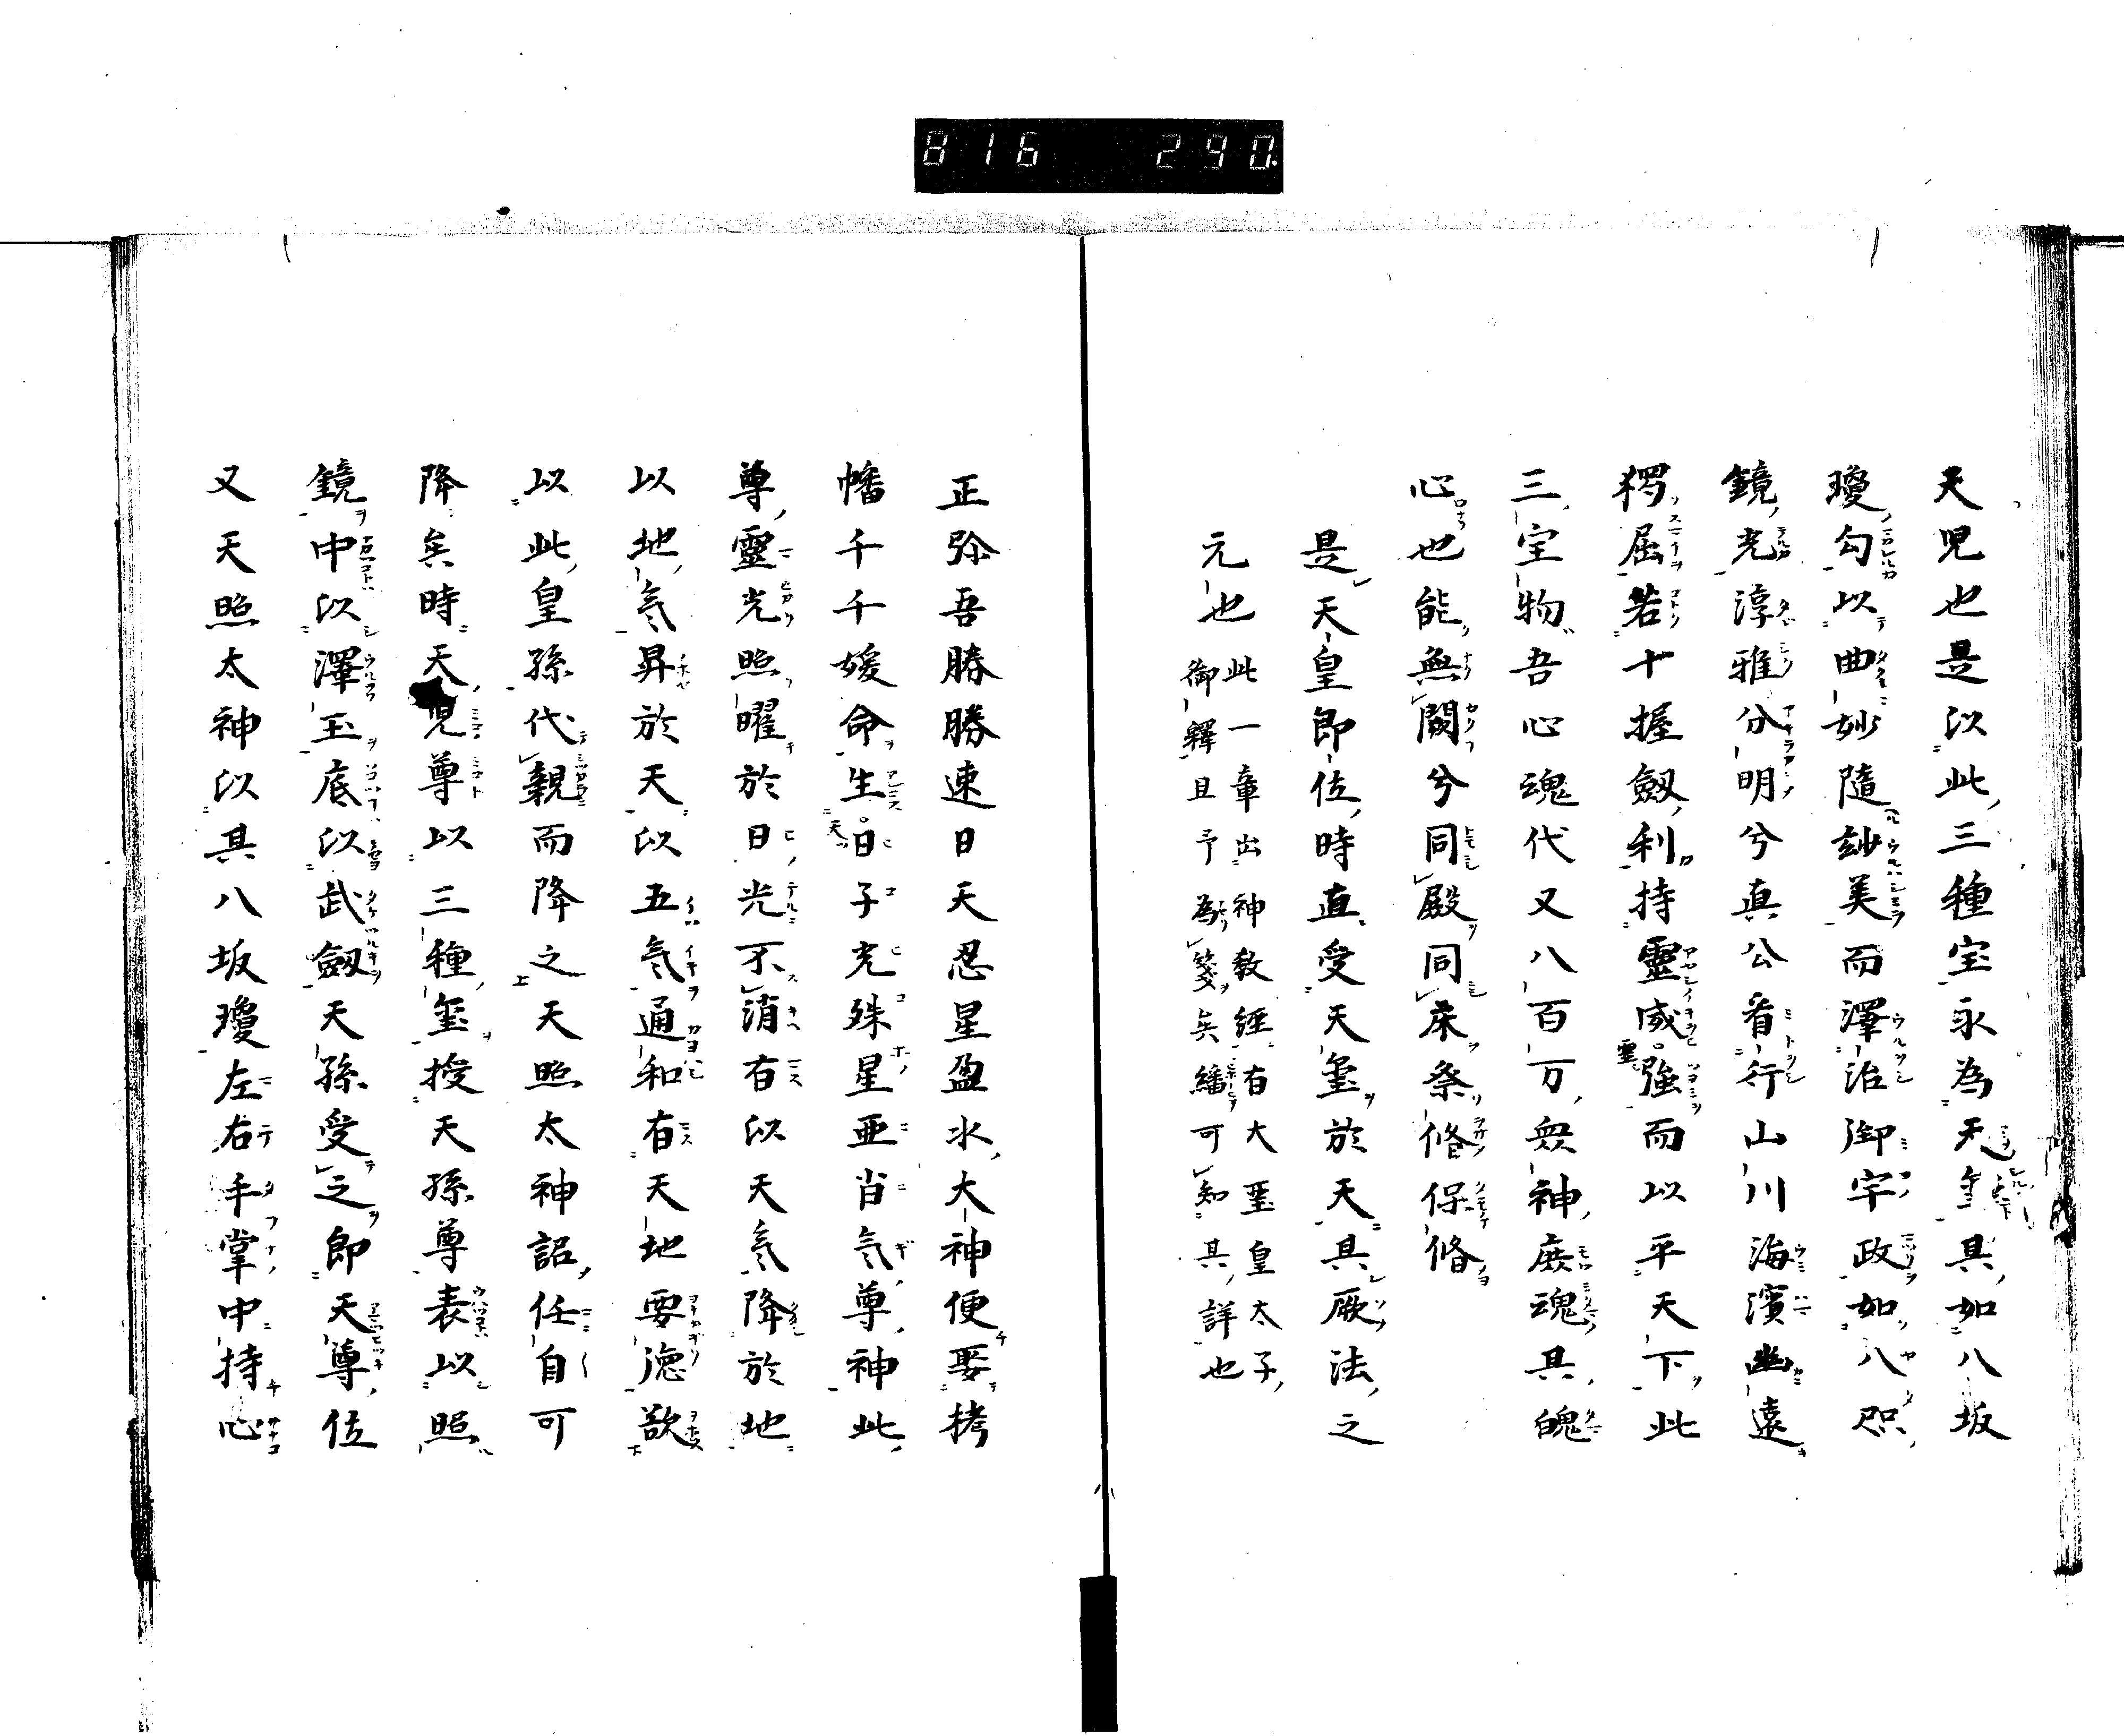 816 290.
天児也是以此三種宝永為天璽其如八坂
瓊勾以曲妙隨玅美而澤治御宇政如八咫
鏡光淳雅分明兮真公看行山川海濱幽遠
屈若十握劔利持靈威強而以平天下此
三宝物吾心魂代又八百万衆神庶魂其魄
心也能無闕兮同殿同床祭脩保脩
是天皇即位時直受天璽於天其厥法之
元也 此一章出神教経有大聖皇太子
御釋且予為箋矣繙可知其詳也
正弥吾勝勝速日天忍星盈氷大神便娶栲
幡千千媛命生日子光殊星亜肖気尊神此
尊靈光照曜於日光不消有以天気降於地
以地気昇於天以五気通和有天地要徳欲
以此皇孫代親而降之天照太神詔任自可
降矣時天児尊以三種璽授天孫尊表以照
鏡中以澤玉底以武劔天孫受之即天尊位
又天照太神以其八坂瓊左右手掌中持心